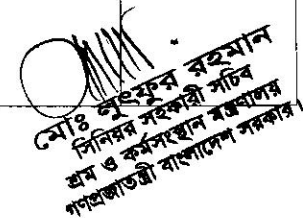 মোঃ লুৎফুর রহমান
সিনিয়র সহকারী সচিব
শ্রম ও কর্মসংস্থান মন্ত্রণালয়
গণপ্রজাতন্ত্রী বাংলাদেশ সরকার।